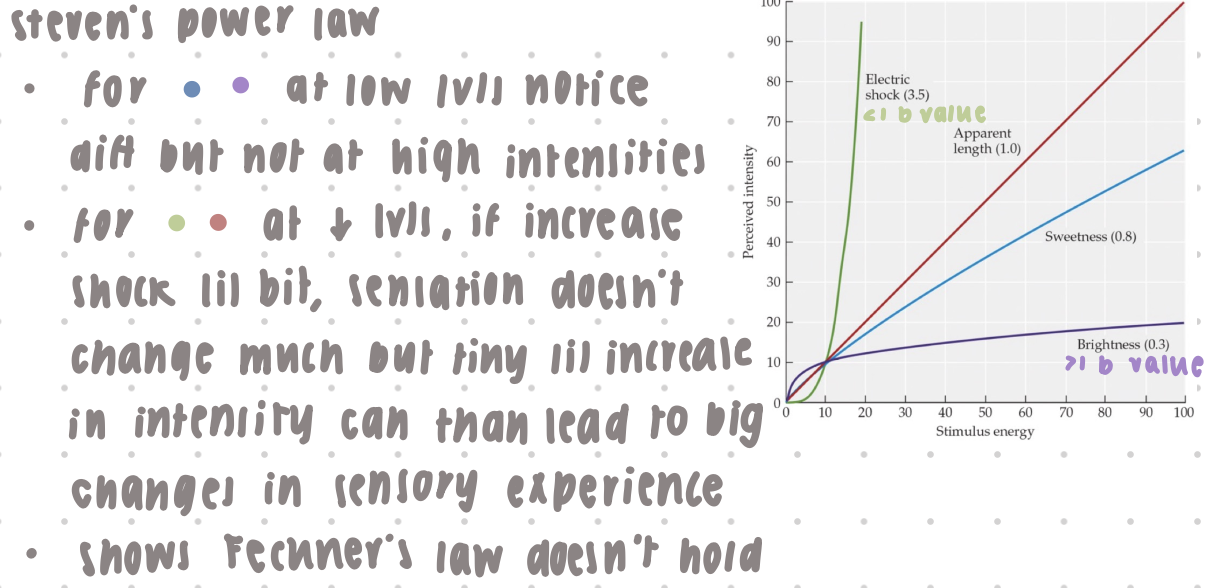 steven's power law
• for at low lvls notice
diff but not at high intensities
• for at ↓ lvls, if increase
shock lil bit, sensation doesn't
change much but tiny lil increase
in intensity can than lead to big
changes in sensory experience
• shows Fechner's law doesn't hold
Perceived intensity
100
90
80
70
60
50
40
30
20
10
0
Electric
shock (3.5)
<1 b value
Apparent
length (1.0)
Sweetness (0.8)
Brightness (0.3)
>1 b value
0 10 20 30 40 50 60 70 80 90 100
Stimulus energy